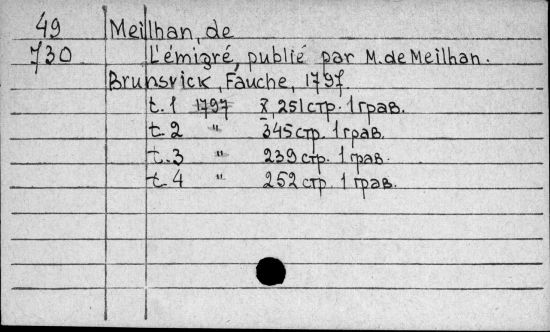 49 Meilhan, de
730 L'émigré, publié par M. de Meilhan.
Brunsvick, Fauche, 1797
t. 1 1797 X, 251 стр. 1 грав.
t. 2 " 345 стр. 1 грав.
t. 3 " 239 стр. 1 грав.
t. 4 " 252 стр. 1 грав.